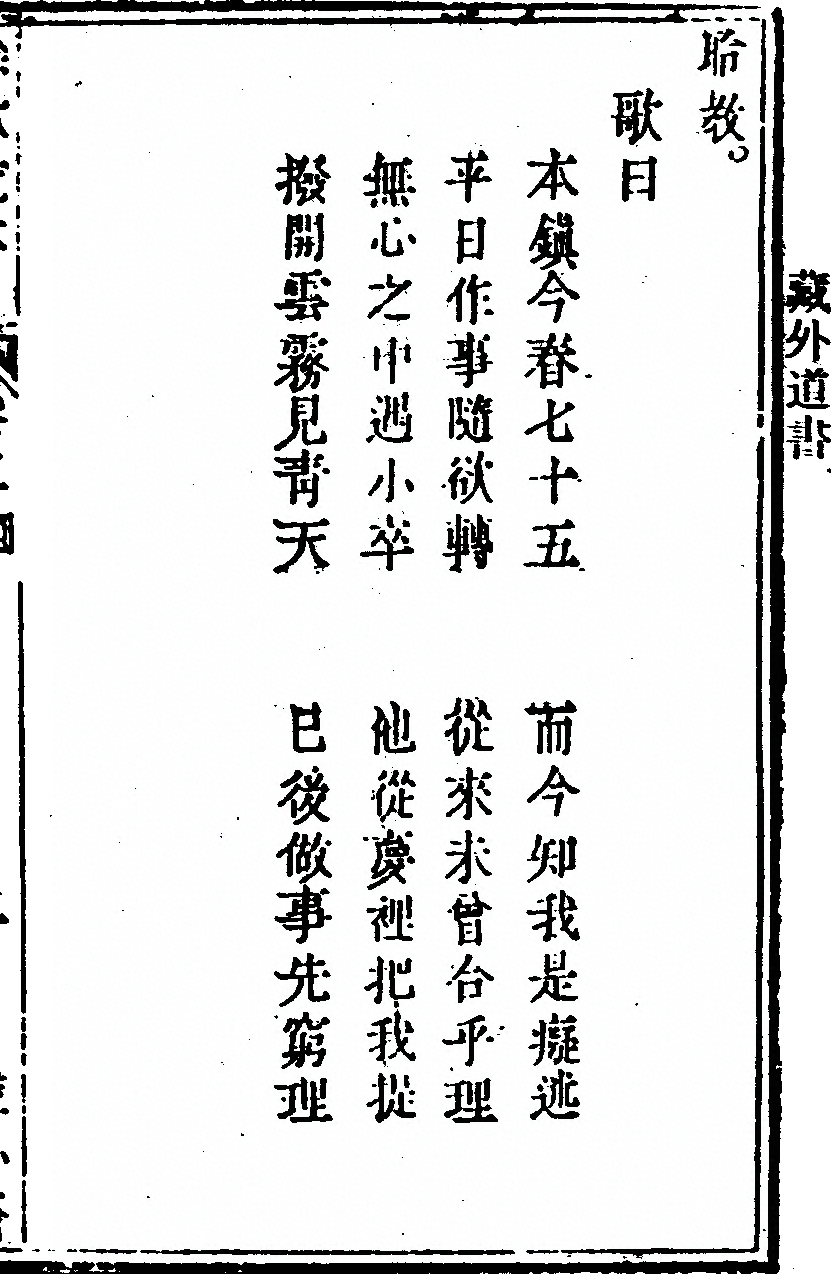 藏外道書
聆教。
歌曰
本鎭今春七十五　而今知我是癡迷
平日作事隨欲轉　從來未曾合乎理
無心之中遇小卒　他從夢裡把我提
撥開雲霧見青天　已後做事先窮理